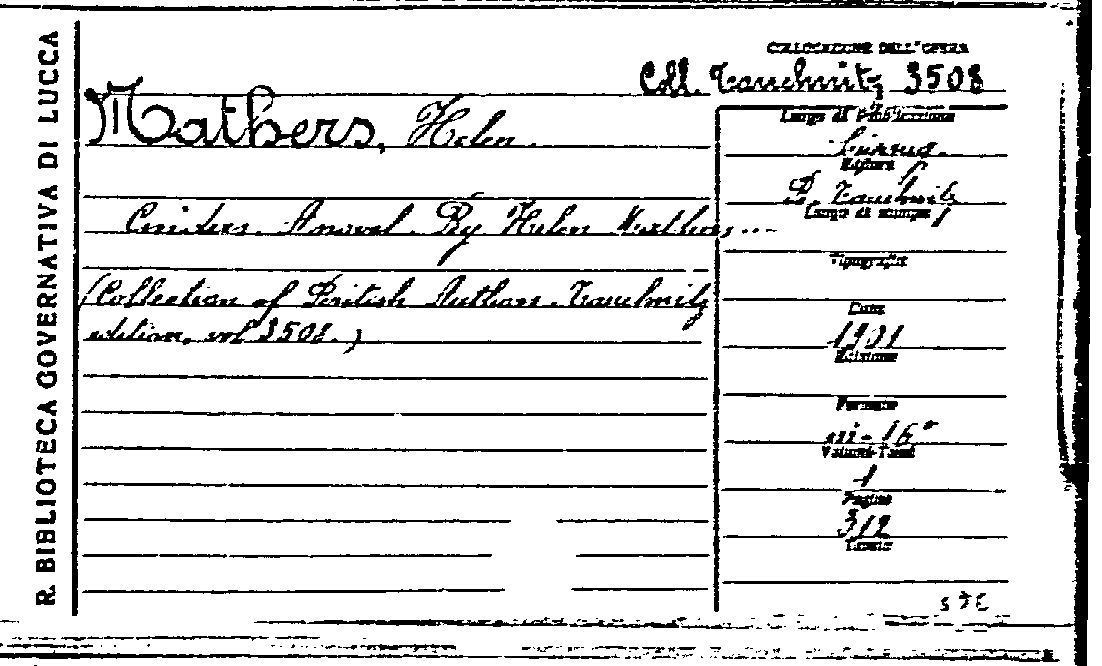 R. BIBLIOTECA GOVERNATIVA DI LUCCA
COLLOCAZIONE DELL'OPERA
Coll. Tauchnitz 3508
Mathers, Helen.
Cinders. A novel. By Helen Mathers...
(Collection of British Authors. Tauchnitz
edition, vol 3508.)
Luogo di Pubblicazione
Editore
B. Tauchnitz
Luogo di stampa
Tipografia
Data
1901
Edizione
Formato
in-16°
Volumi-Tomi
1
Pagine
312
Tavole